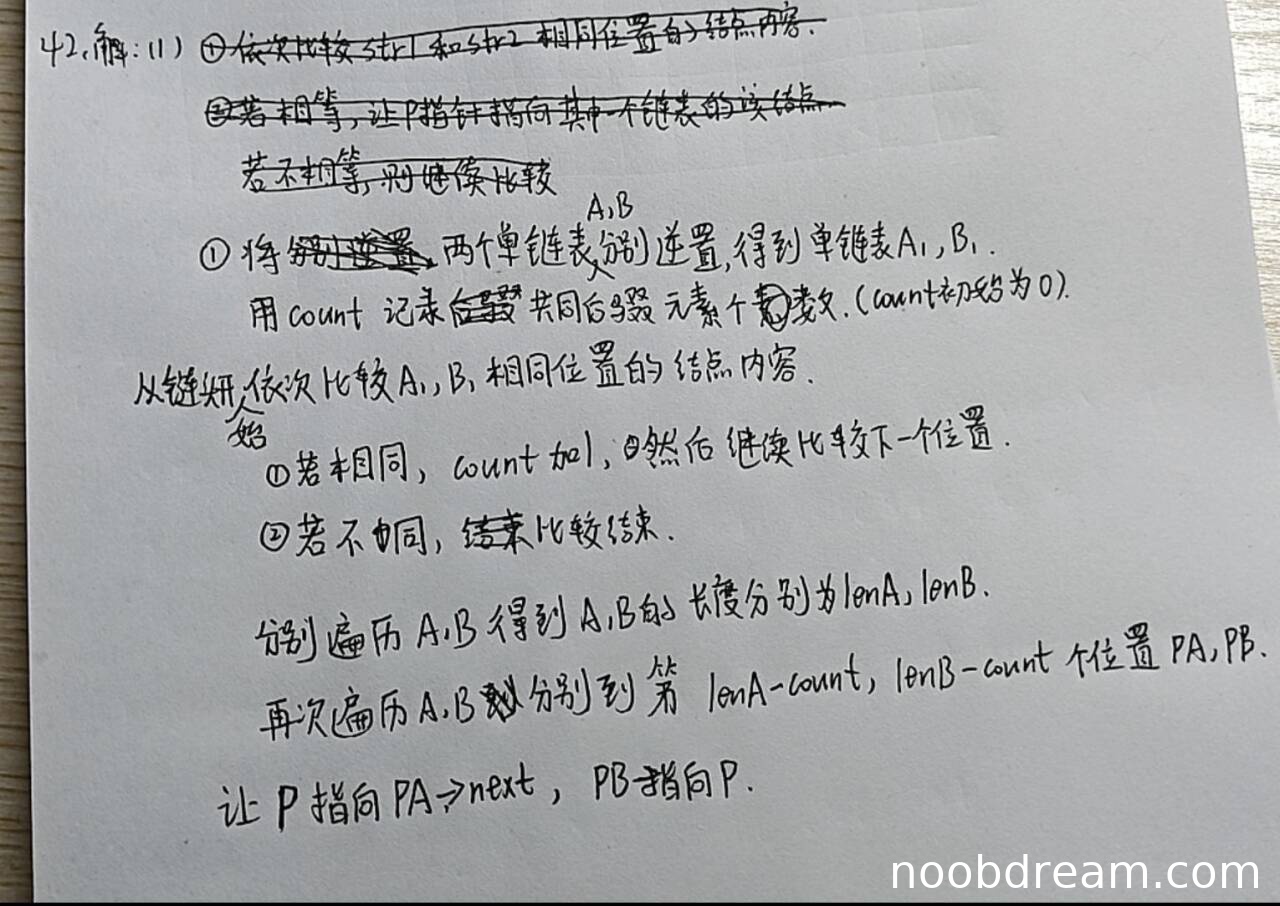 42.解:(1) ①依次比较str1和str2相同位置的结点内容.
②若相等,让P指针指向其中一个链表的该结点
若不相等,则继续比较
①将分别逆置 两个单链表A,B分别逆置,得到单链表A₁,B₁.
用count记录后缀共同后缀元素个数.(count初始为0).
从链头开始依次比较A₁,B₁相同位置的结点内容.
①若相同,count加1,然后继续比较下一个位置.
②若不同,结束比较结束.
分别遍历A,B得到A,B的长度分别为lenA,lenB.
再次遍历A,B分别到第lenA-count,lenB-count个位置PA,PB.
让P指向PA->next,PB指向P.
noobdream.com